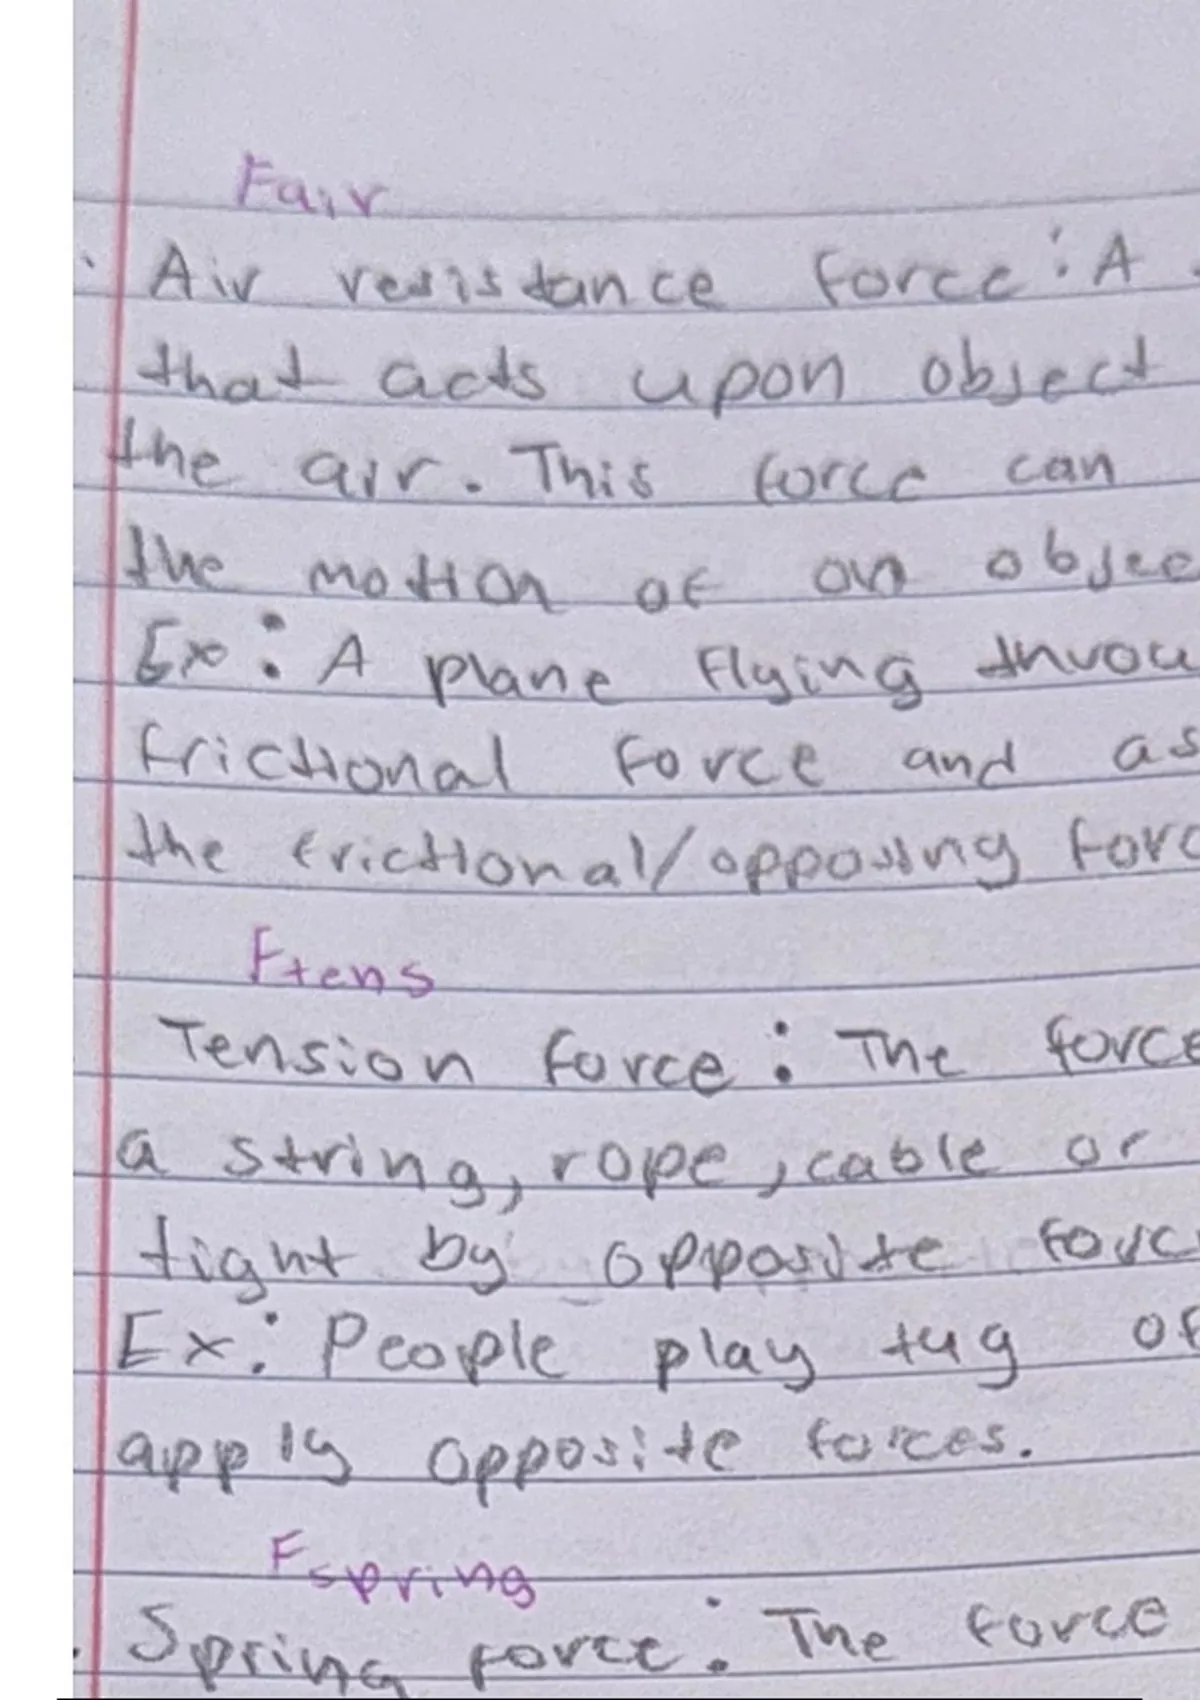 Fair
· Air resistance force: A
that acts upon object
the air. This force can
the motion of an objec
Ex: A plane flying throu
frictional force and as
the frictional/opposing forc
Ftens
Tension force: The force
a string, rope, cable or
tight by opposite forc
Ex: People play tug of
apply opposite forces.
Fspring
· Spring force: The force